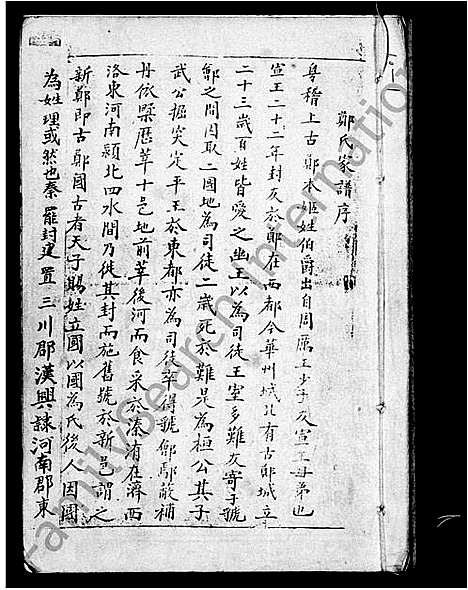 鄭氏家譜序
粵稽上古鄭本姬姓伯爵出自周厲王少子友宣王母弟也
宣王二十二年封友於鄭在西都今華州城北有古鄭城立
二十三歲百姓皆愛之幽王以為司徒王室多難友寄孥號
鄶之間因取二國地為司徒二歲死於難是為桓公其子
武公掘突定平王於東都亦為司徒卒得號鄶鄢蔽補
丹依㽥歷莘十邑地前莘後河而食采於溱洧在濟西
洛東河南潁北四水間乃徙其封而施舊號於新邑謂之
新鄭即古鄭國古者天子賜姓立國以國為氏後人因國
為姓理或然也秦罷封建置三川郡漢興隸河南郡東
FamilySearch International